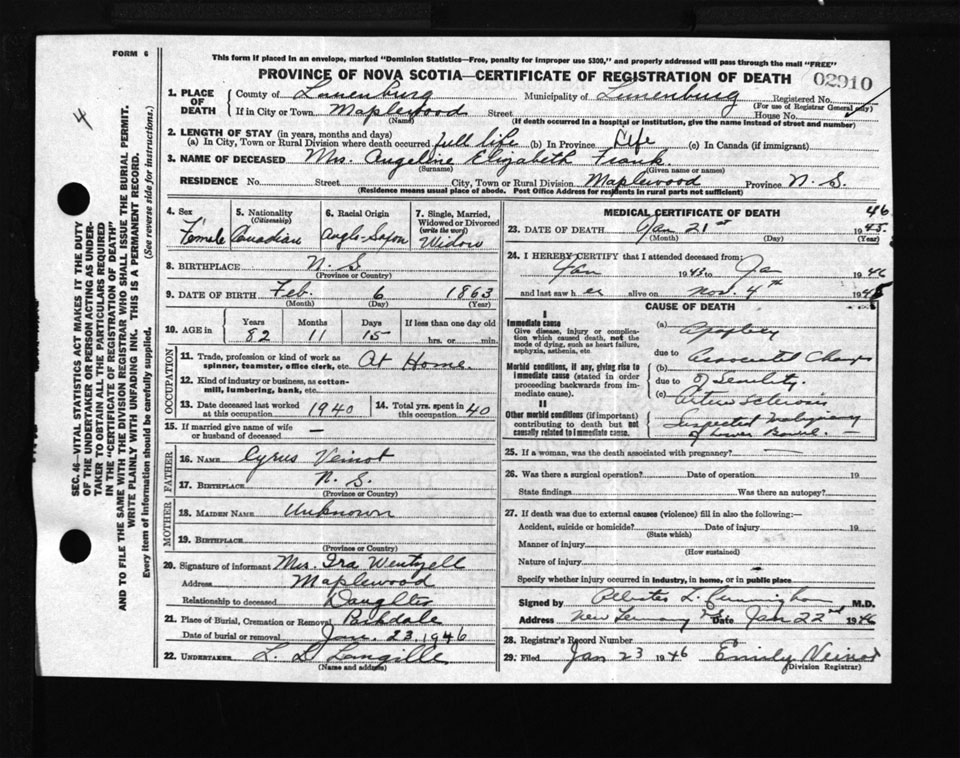 FORM 6
This form if placed in an envelope, marked "Dominion Statistics—Free, penalty for improper use $300," and properly addressed will pass through the mail "FREE"
PROVINCE OF NOVA SCOTIA—CERTIFICATE OF REGISTRATION OF DEATH
02910
4
SEC. 46—VITAL STATISTICS ACT MAKES IT THE DUTY
OF THE UNDERTAKER OR PERSON ACTING AS UNDER-
TAKER TO OBTAIN ALL THE PARTICULARS REQUIRED
IN THE "CERTIFICATE OF REGISTRATION OF DEATH"
AND TO FILE THE SAME WITH THE DIVISION REGISTRAR WHO SHALL ISSUE THE BURIAL PERMIT.
WRITE PLAINLY WITH UNFADING INK. THIS IS A PERMANENT RECORD.
Every item of information should be carefully supplied. (See reverse side for instructions.)
1. PLACE OF DEATH
County of Lunenburg Municipality of Lunenburg Registered No.
(For use of Registrar General only)
If in City or Town Maplewood Street House No.
(Name) (If death occurred in a hospital or institution, give the name instead of street and number)
2. LENGTH OF STAY (in years, months and days)
(a) In City, Town or Rural Division where death occurred full life (b) In Province Life (c) In Canada (if immigrant)
3. NAME OF DECEASED Mrs. Angeline Elizabeth Frank
(Surname) (Given name or names)
RESIDENCE No. Street City, Town or Rural Division Maplewood Province N. S.
(Residence means usual place of abode. Post Office Address for residents in rural parts not sufficient)
4. Sex
Female
5. Nationality (Citizenship)
Canadian
6. Racial Origin
Anglo-Saxon
7. Single, Married, Widowed or Divorced (write the word)
Widow
8. BIRTHPLACE N. S.
(Province or Country)
9. DATE OF BIRTH Feb. 6 1863
(Month) (Day) (Year)
10. AGE in Years Months Days If less than one day old
82 11 15 hrs. or min.
OCCUPATION
11. Trade, profession or kind of work as spinner, teamster, office clerk, etc. At Home
12. Kind of industry or business, as cotton-mill, lumbering, bank, etc.
13. Date deceased last worked at this occupation 1940 14. Total yrs. spent in this occupation 40
15. If married give name of wife or husband of deceased —
FATHER
16. NAME Cyrus Veinot
17. BIRTHPLACE N. S.
(Province or Country)
MOTHER
18. MAIDEN NAME Unknown
19. BIRTHPLACE
(Province or Country)
20. Signature of informant Mrs. Ira Wentzell
Address Maplewood
Relationship to deceased Daughter
21. Place of Burial, Cremation or Removal Parkdale
Date of burial or removal Jan. 23, 1946
22. UNDERTAKER L. D. Langille
(Name and address)
MEDICAL CERTIFICATE OF DEATH
46
23. DATE OF DEATH Jan 21st 1945
(Month) (Day) (Year)
24. I HEREBY CERTIFY that I attended deceased from:
Jan 1943 to Jan 1946
and last saw h er alive on Nov. 4th 1945
CAUSE OF DEATH
I
Immediate cause
Give disease, injury or complication which caused death, not the mode of dying, such as heart failure, asphyxia, asthenia, etc
(a) Apoplexy
due to
Morbid conditions, if any, giving rise to immediate cause (stated in order proceeding backwards from immediate cause).
(b) Associated Changes
due to of Senility
(c) Arterio Sclerosis
II
Other morbid conditions (if important) contributing to death but not causally related to immediate cause.
Suspected
of Lower Bowel.
25. If a woman, was the death associated with pregnancy? —
26. Was there a surgical operation? Date of operation 19
State findings Was there an autopsy?
27. If death was due to external causes (violence) fill in also the following:—
Accident, suicide or homicide? Date of injury 19
(State which)
Manner of injury
(How sustained)
Nature of injury
Specify whether injury occurred in industry, in home, or in public place
Signed by L. Cunningham M.D.
Address New Germany Date Jan 22nd 1946
28. Registrar's Record Number
29. Filed Jan 23 1946 Emily Veinot
(Division Registrar)